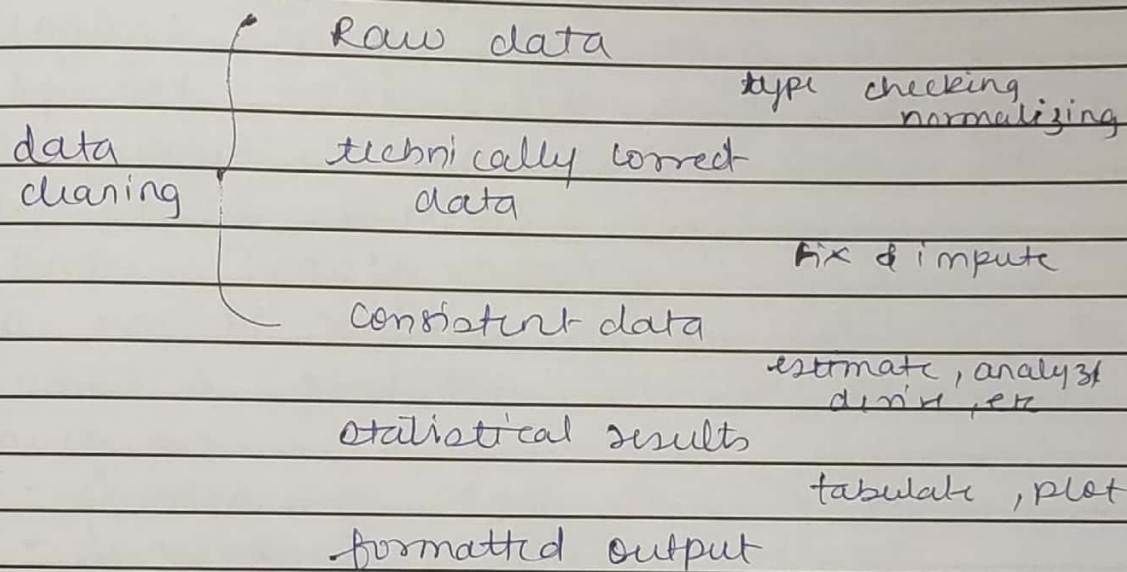 Raw data
type checking
normalizing
data technically correct
cleaning data
fix & impute
consistent data
estimate, analyze
derive, etc
statistical results
tabulate, plot
formatted output